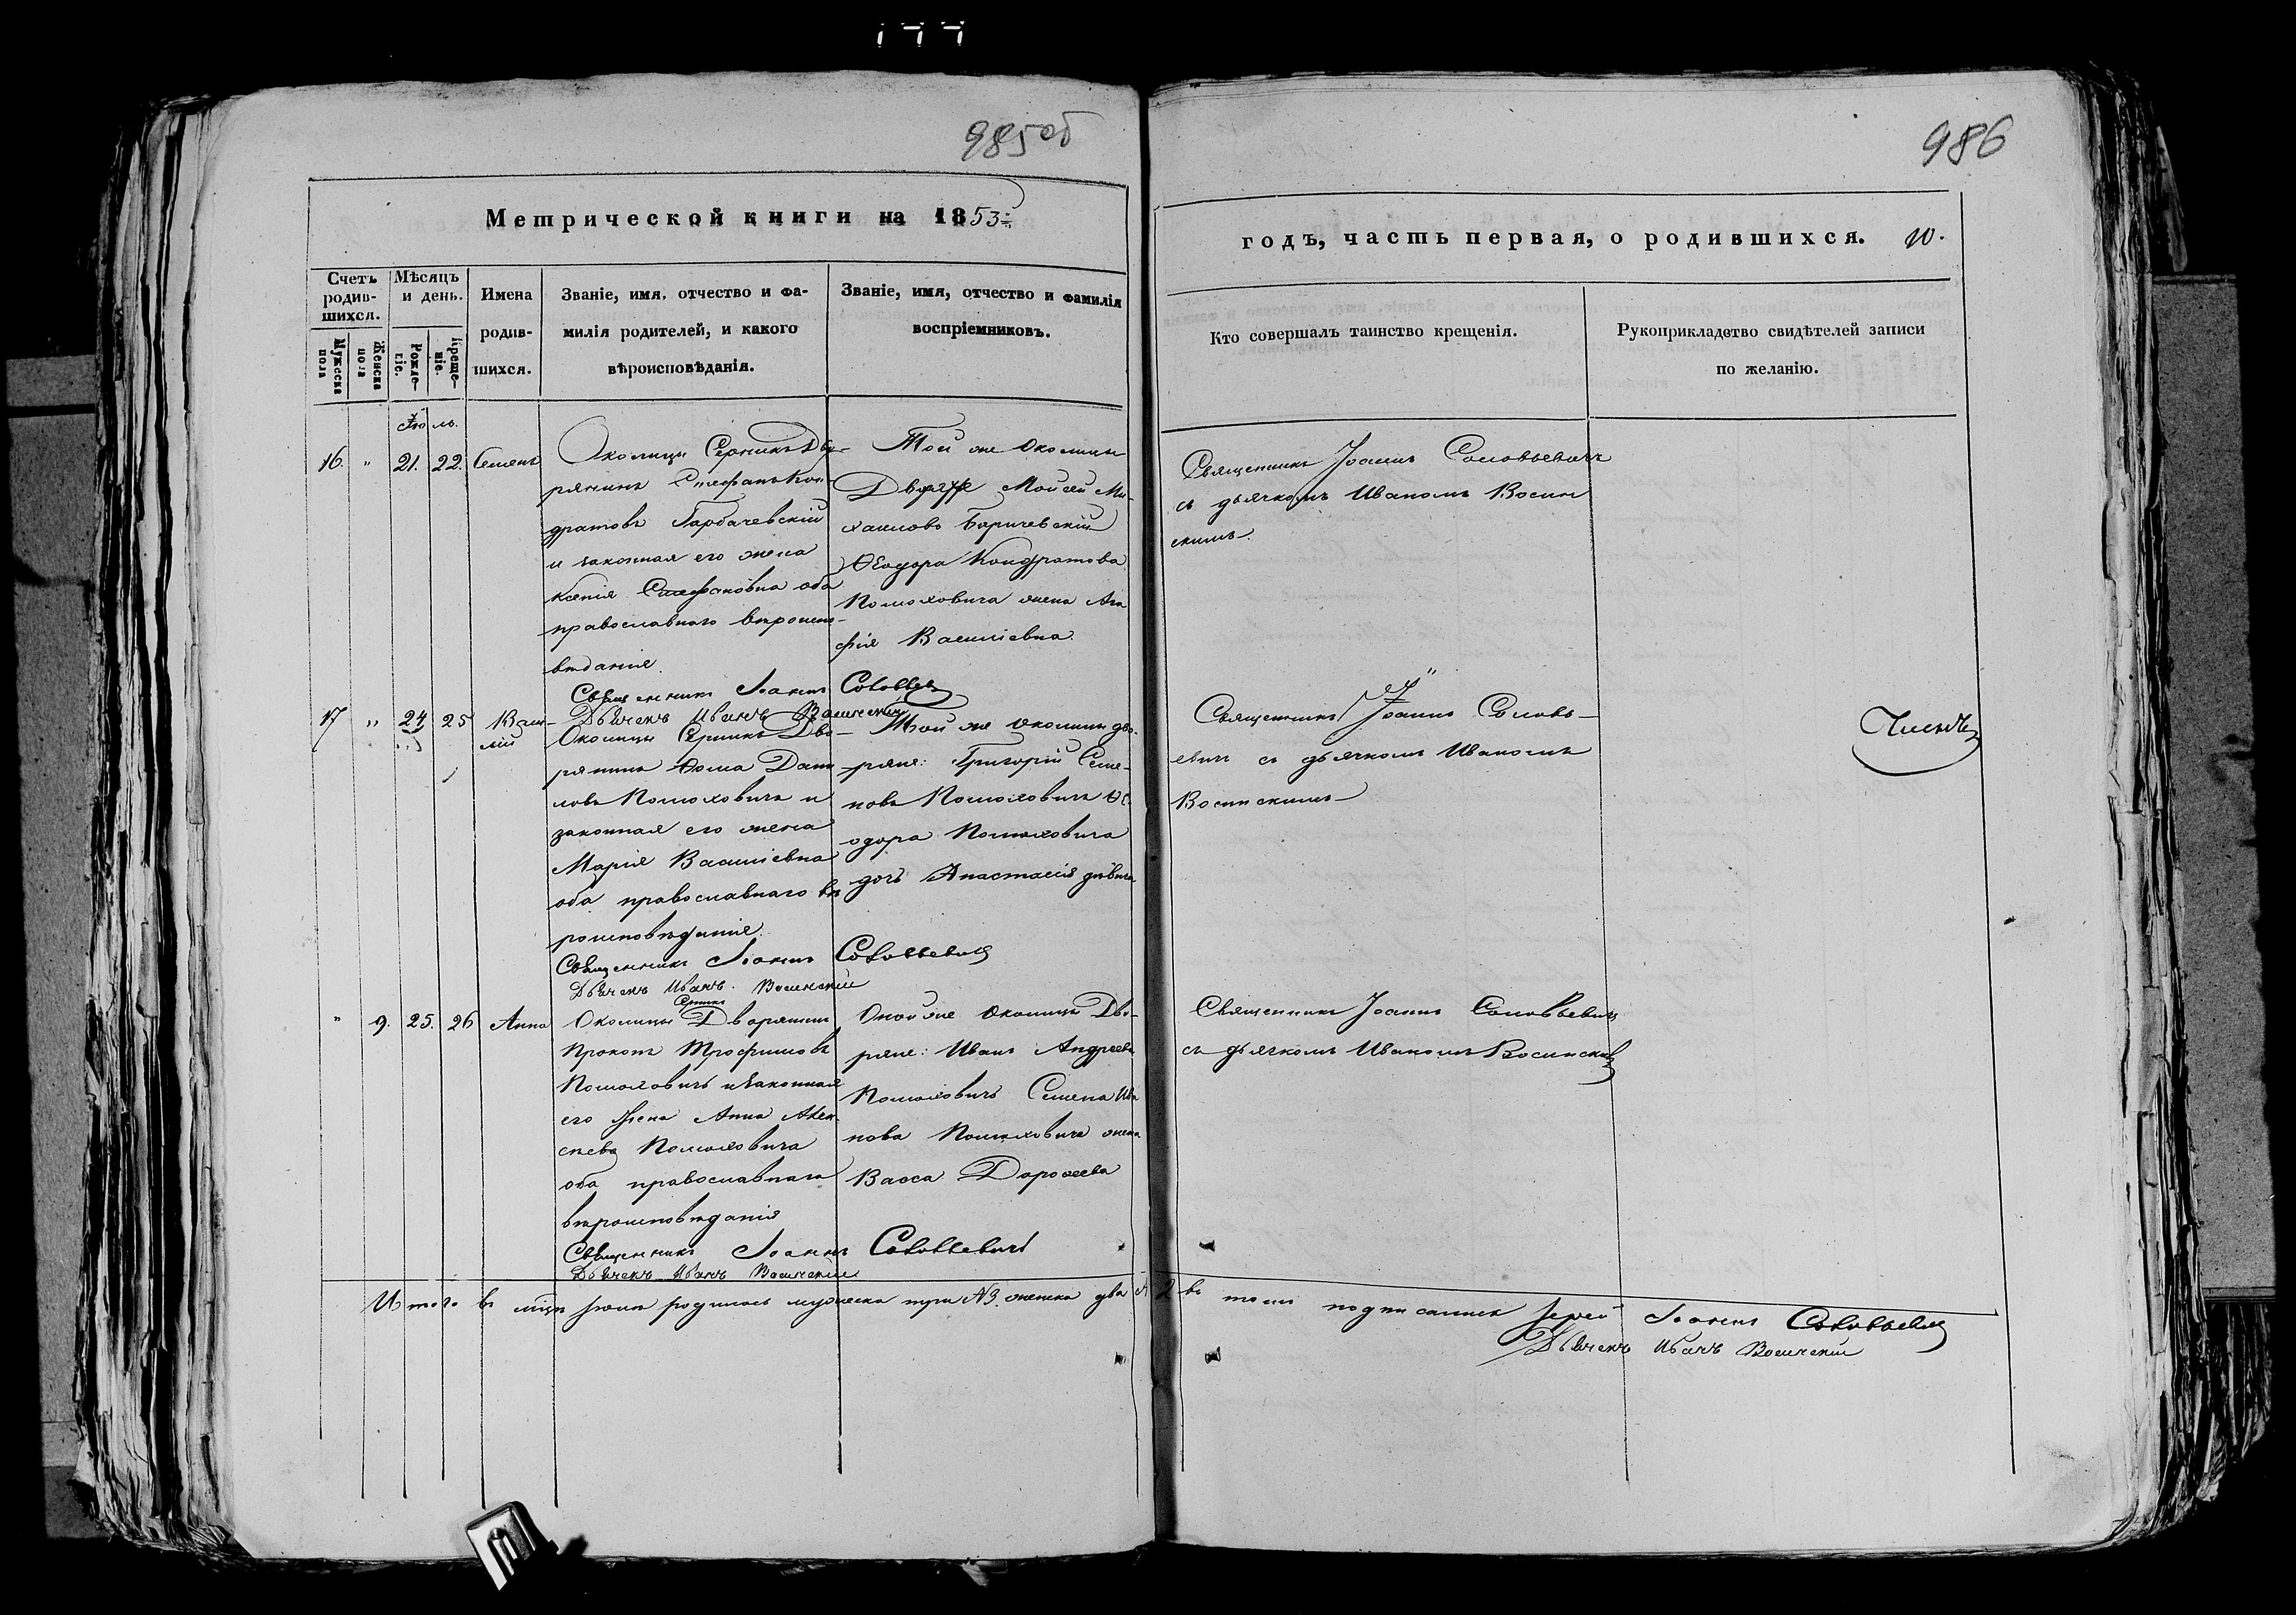 985об
986
Метрической книги на 1853:
годъ, часть первая, о родившихся. 10.
Счетъ родив-шихся.
Мужеска пола
Женска пола
Мѣсяцъ и день.
Рожде-ніе.
Креще-ніе.
Имена родив-шихся.
Званіе, имя, отчество и фа-
милія родителей, и какого
вѣроисповѣданія.
Званіе, имя, отчество и фамилія
воспріемниковъ.
Кто совершалъ таинство крещенія.
Рукоприкладство свидѣтелей записи
по желанію.
Іюль.
16. " 21. 22. Семенъ
Околицы Серникъ Дво-
рянинъ Стефанъ Кон-
дратовъ Горбачевскій
и законная его жена
Ксенія Стефановна оба
православнаго вѣроиспо-
вѣданія.
Той же Околицы
Дворяне Моисей Ми-
хаиловъ Баричевскій
Ѳеодора Кондратова
Полюховича жена Ага
фія Василіевна.
Священникъ Іоаннъ Соловьевичъ
съ дьячкомъ Иваномъ Восин
скимъ.
Священникъ Іоаннъ Соловьев
Дьячекъ Иванъ Восинскій
17 " 24 25 Васи-
лій
Околицы Серникъ Дво-
рянинъ Ѳома Дани
ловъ Полюховичъ и
законная его жена
Марія Василіевна
оба православнаго вѣ
роисповѣданія.
Той же околицы дво-
ряне: Григорій Семе-
новъ Полюховичъ Ѳе
одора Полюховича
дочь Анастасія дѣвица
Священникъ Іоаннъ Соловь-
евичъ съ дьячкомъ Иваномъ
Восинскимъ
Священникъ Іоаннъ Соловьевичъ
Дьячекъ Иванъ Восинскій
" 9. 25. 26 Анна
Серникъ
Околицы Дворянинъ
Прокопъ Трофимовъ
Полюховичъ и законная
его жена Анна Алек
сѣева Полюховича
оба православнаго
вѣроисповѣданія
Оной же Околицы Дво-
ряне: Иванъ Андреевъ
Полюховичъ Семена Ива
нова Полюховича жена
Васса Дороѳеева
Священникъ Іоаннъ Соловьевичъ
съ дьячкомъ Иваномъ Восинскимъ
Священникъ Іоаннъ Соловьевичъ
Дьячекъ Иванъ Восинскій
Итого въ мцѣ Іюлѣ родилось мужеска три №3. женска два №2 въ томъ подписались Іерей Іоаннъ Соловьевичъ
Дьячекъ Иванъ Восинскій